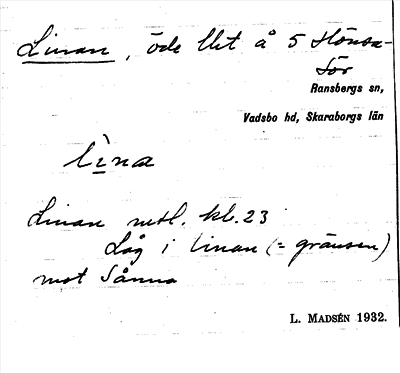 Linan, öde llet å 5 Hönsa-
tör
Ransbergs sn,
Vadsbo hd, Skaraborgs län
lìna
Linan metl. kl. 23
Låg i linan (= gränsen)
mot Sånna
L. MADSÉN 1932.